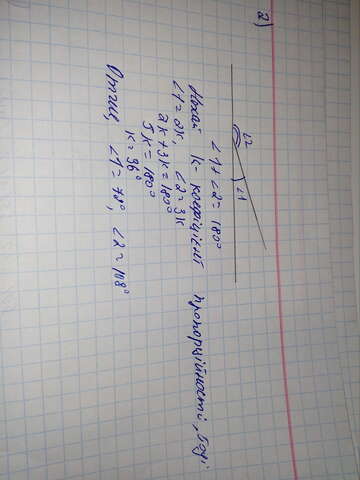 2)
∠2 ∠1
∠1 + ∠2 = 180°
Нехай k - коефіцієнт пропорційності, тоді
∠1 = 2k, ∠2 = 3k
2k + 3k = 180°
5k = 180°
k = 36°
Отже, ∠1 = 72°, ∠2 = 108°